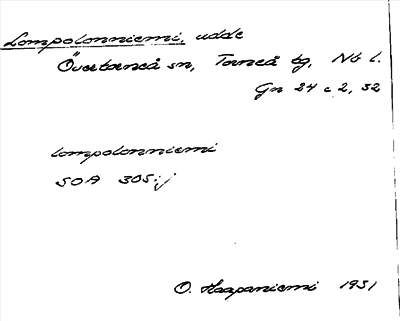 Lompolonniemi, udde
Övertorneå sn, Torneå tg, Nb l.
Gn 24 c 2, 32
lompolonniemi
SOA 305:j
O. Haapaniemi 1931